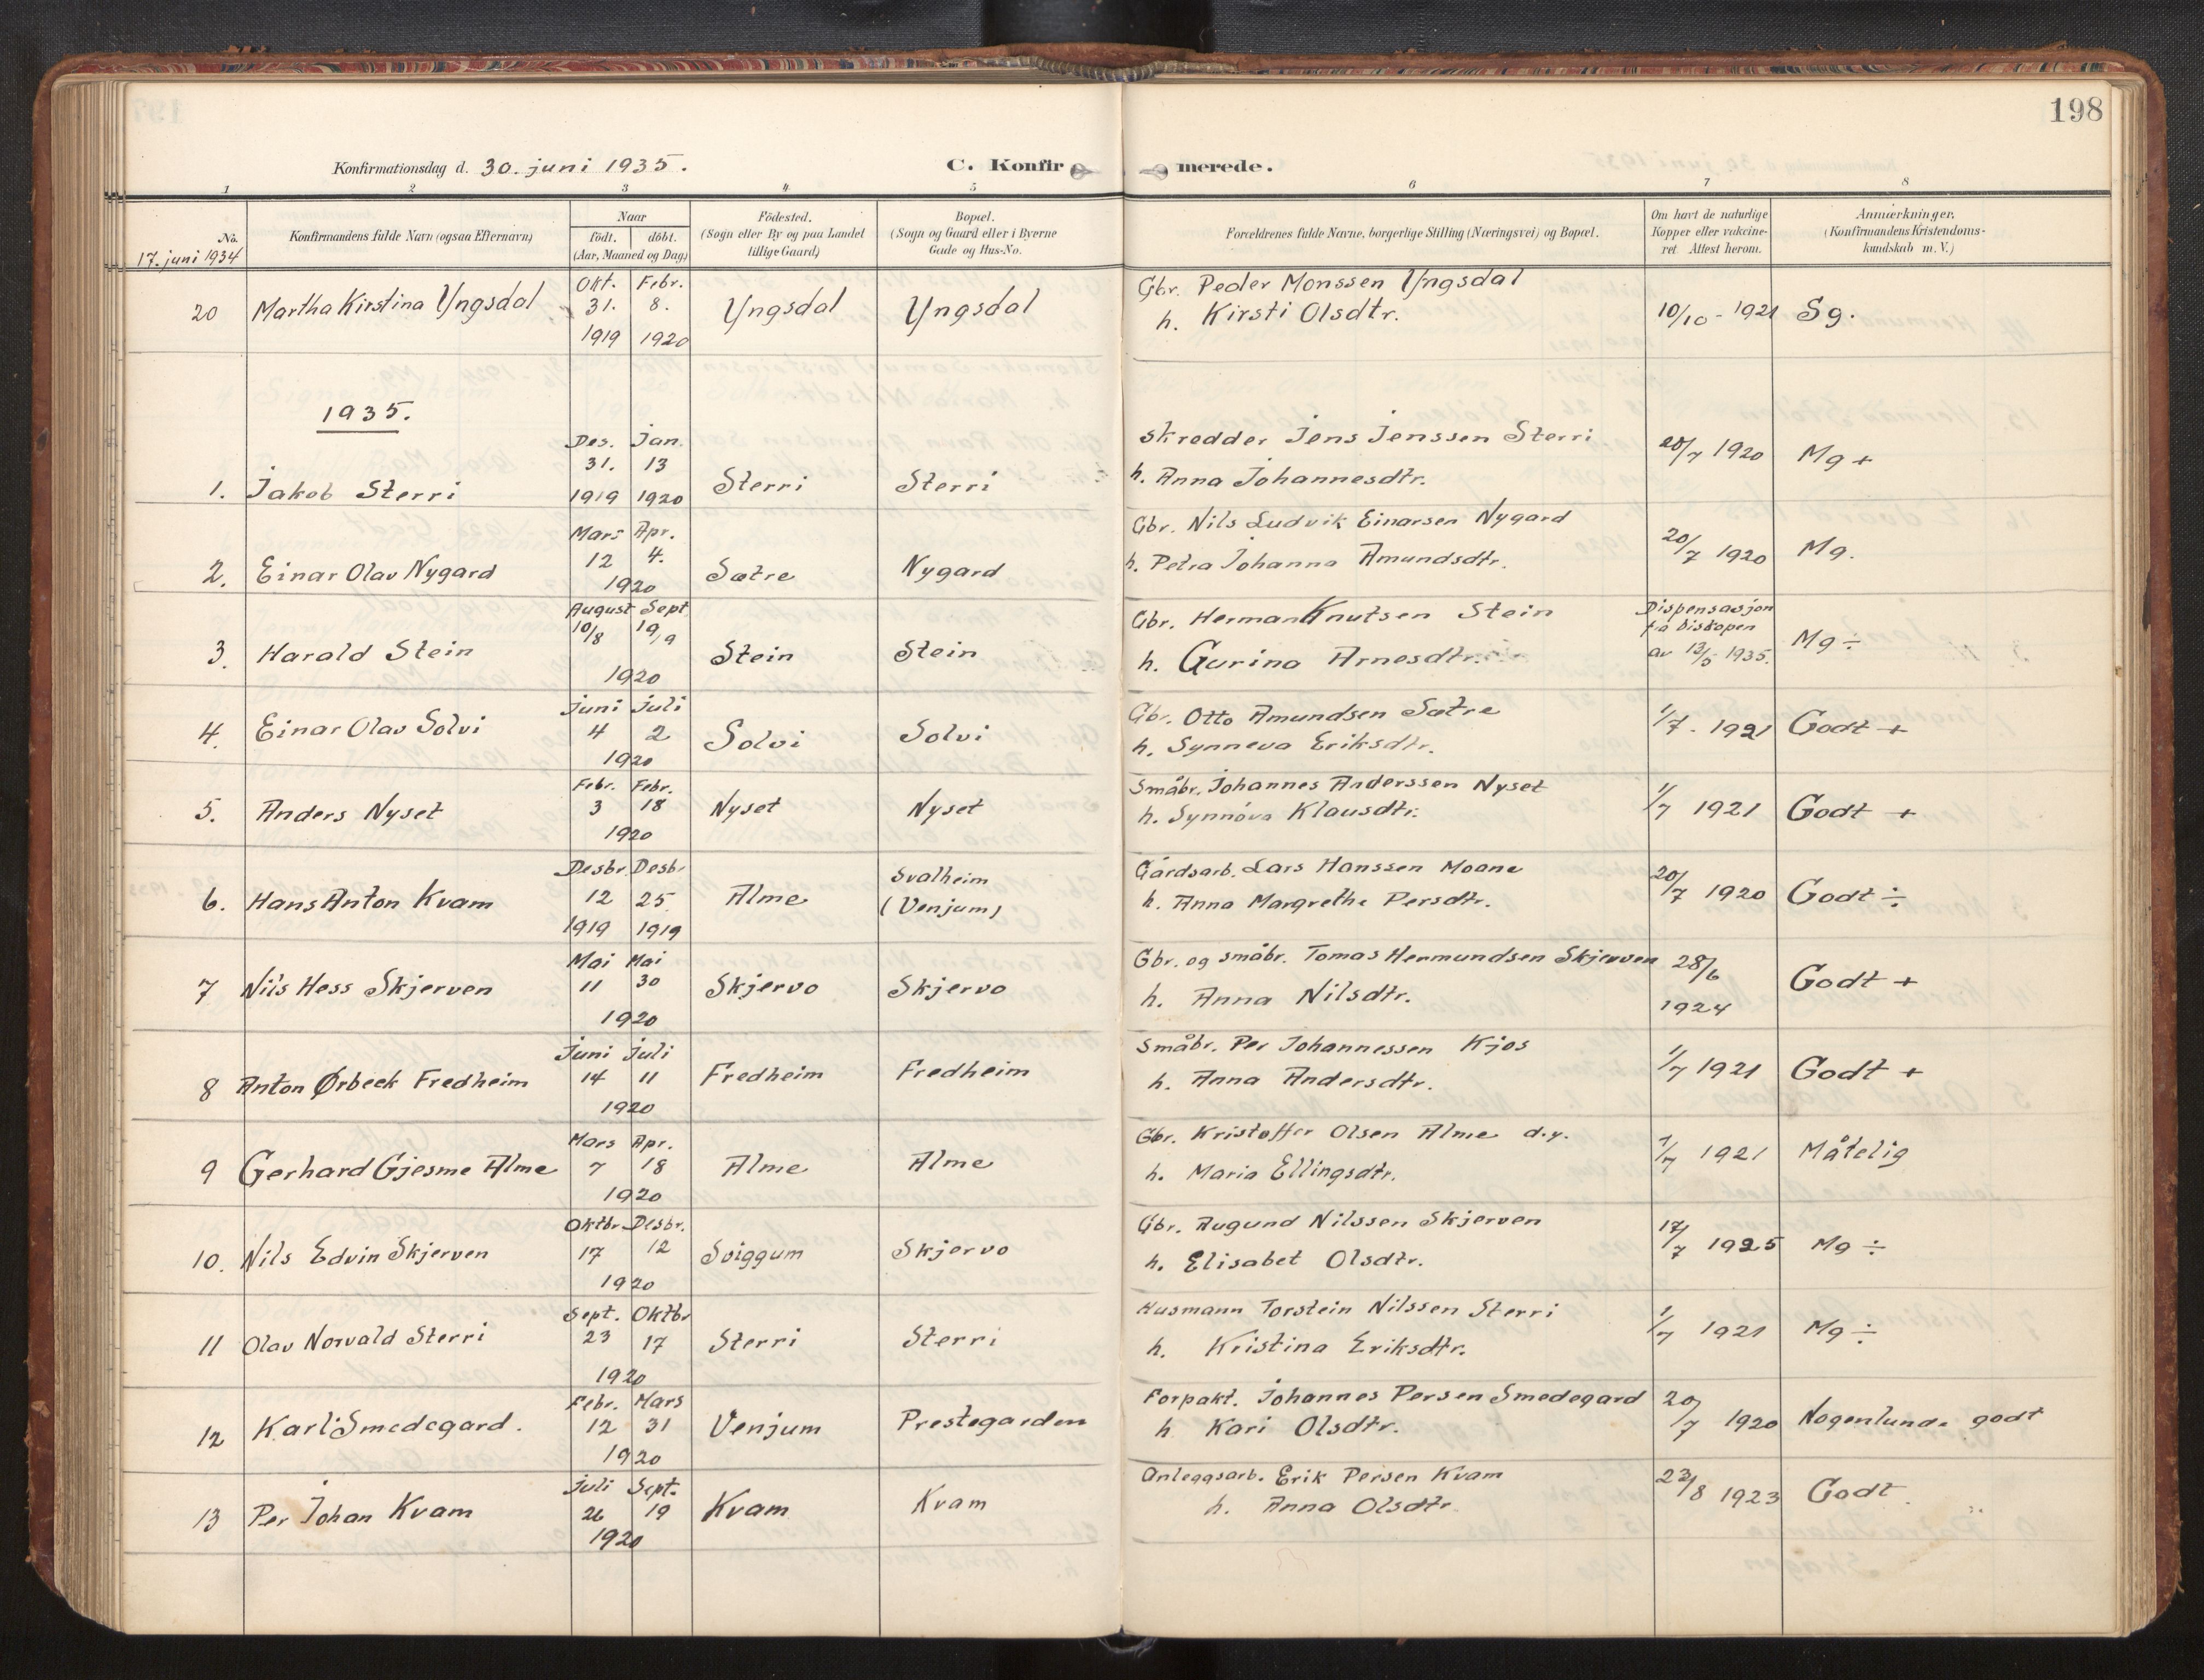 198
Konfirmationsdag d. 30. juni 1935.
C. Konfirmerede.
1 2 3 4 5 6 7 8
No.
17. juni 1934
Konfirmandens fulde Navn (ogsaa Efternavn)
Naar
födt. döbt.
(Aar, Maaned og Dag)
Födested.
(Sogn eller By og paa Landet
tillige Gaard)
Bopæl.
(Sogn og Gaard eller i Byerne
Gade og Hus-No.
Forældrenes fulde Navne, borgerlige Stilling (Næringsvei) og Bopæl.
Om havt de naturlige
Kopper eller vakcine-
ret Attest herom.
Anmærkninger.
(Konfirmandens Kristendoms-
kundskab m. V.)
Okt. Febr.
20 Martha Kirstina Yngsdal 31. 8. Yngsdal Yngsdal
1919 1920
Gbr. Peder Monssen Yngsdal
h. Kirsti Olsdtr.
10/10 - 1921 Sg.
1935.
Des. Jan.
31. 13
1. Jakob Sterri 1919 1920 Sterri Sterri
Skredder Jens Jenssen Sterri
h. Anna Johannesdtr.
20/7 1920 Mg +
Mars Apr.
12 4.
2. Einar Olav Nygard 1920 Sætre Nygard
Gbr. Nils Ludvik Einarsen Nygard
h. Petra Johanna Amundsdtr.
20/7 1920 Mg.
August Sept
10/8 19/9
3. Harald Stein 1920 Stein Stein
Gbr. Herman Knutsen Stein
h. Gurina Arnesdtr.
Dispensasjon
frå biskopen
av 13/5 1935. Mg ÷
Juni Juli
4. Einar Olav Solvi 4 2 Solvi Solvi
1920
Gbr. Otto Amundsen Sætre
h. Synneva Eriksdtr.
1/7. 1921 Godt +
Febr. Febr.
5. Anders Nyset 3 18 Nyset Nyset
1920
Småbr. Johannes Anderssen Nyset
h. Synnöva Klausdtr.
1/7 1921 Godt +
Desbr. Desbr
6. Hans Anton Kvam 12 25 Alme Svalheim
(Venjum)
1919 1919
Gårdsarb. Lars Hanssen Moane
h. Anna Margrethe Persdtr.
20/7 1920 Godt ÷
Mai Mai
7 Nils Hess Skjerven 11 30 Skjervo Skjervo
1920
Gbr. og småbr. Tomas Hermundsen Skjerven
h. Anna Nilsdtr.
28/6
1924 Godt +
Juni Juli
8 Anton Ørbeck Fredheim 14 11 Fredheim Fredheim
1920
Småbr. Per Johannessen Kjos
h. Anna Andersdtr.
1/7 1921 Godt +
Mars Apr.
9 Gerhard Gjesme Alme 7 18 Alme Alme
1920
Gbr. Kristoffer Olsen Alme d.y.
h. Maria Ellingsdtr.
1/7 1921 Måtelig
Oktbr. Desbr.
10. Nils Edvin Skjerven 17 12 Sviggum Skjervo
1920
Gbr. Augund Nilssen Skjerven
h. Elisabet Olsdtr.
17/7 1925 Mg ÷
Sept. Oktbr
11 Olav Norvald Sterri 23 17 Sterri Sterri
1920
Husmann Torstein Nilssen Sterri
h. Kristina Eriksdtr.
1/7 1921 Mg ÷
Febr. Mars
12 Karl Smedegard. 12 31 Venjum Prestegarden
1920
Forpakt. Johannes Persen Smedegard
h Kari Olsdtr.
20/7 1920 Nogenlunde godt
Juli Sept.
13 Per Johan Kvam 26 19 Kvam Kvam
1920
Anleggsarb. Erik Persen Kvam
h. Anna Olsdtr.
23/8 1923 Godt